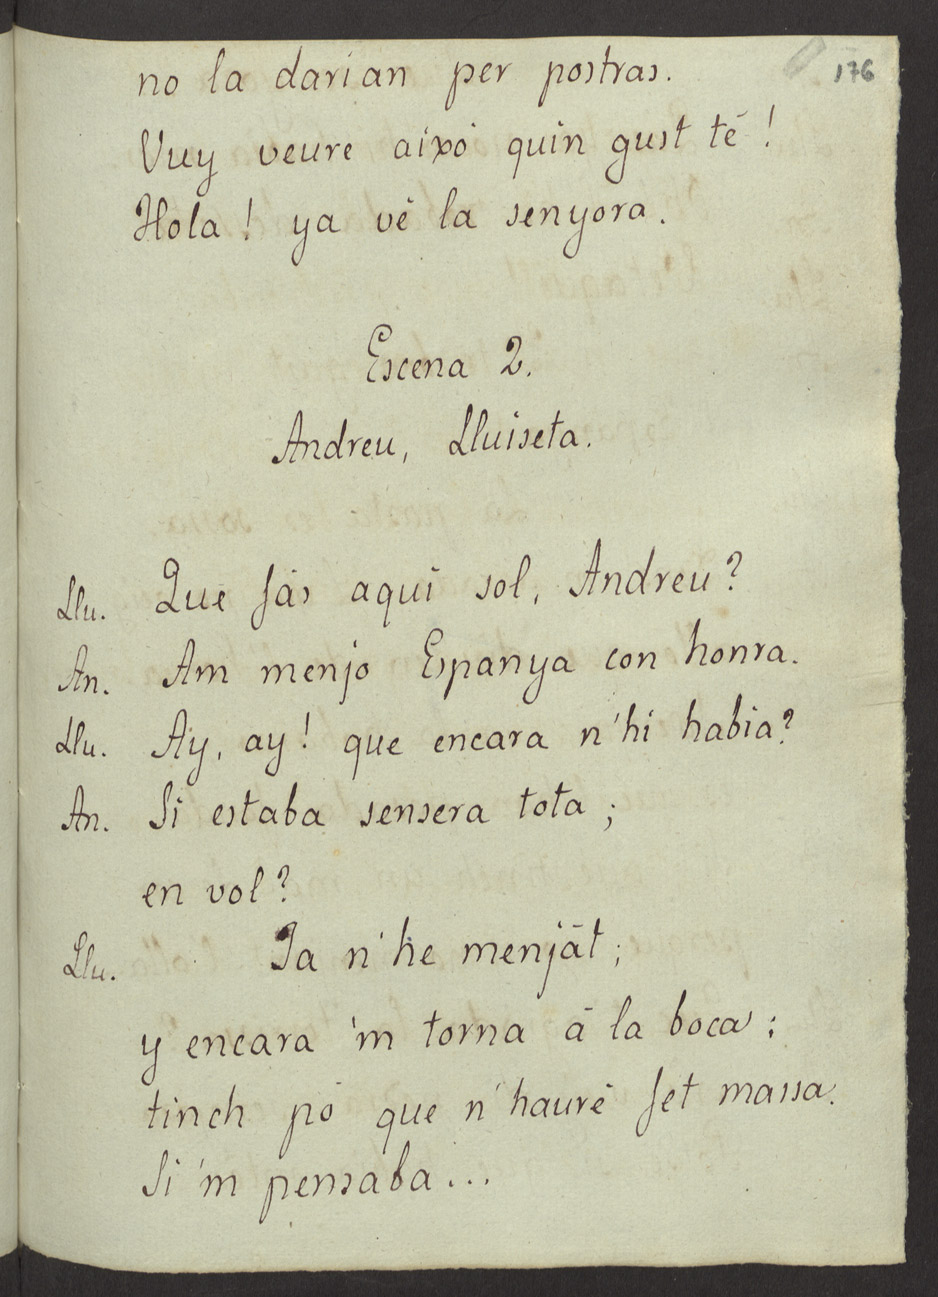 176
no la darian per postras.
Vuy veure aixó quin gust té!
Hola! ya vé la senyora.
Escena 2.
Andreu, Lluiseta.
Llu. Que fás aquí sol, Andreu?
An. Am menjo Espanya con honra.
Llu. Ay, ay! que encara n'hi habia?
An. Si estaba sensera tota;
en vol?
Llu. Ja n'he menját;
y encara 'm torna á la boca;
tinch pó que n'hauré fet massa.
Si 'm pensaba...